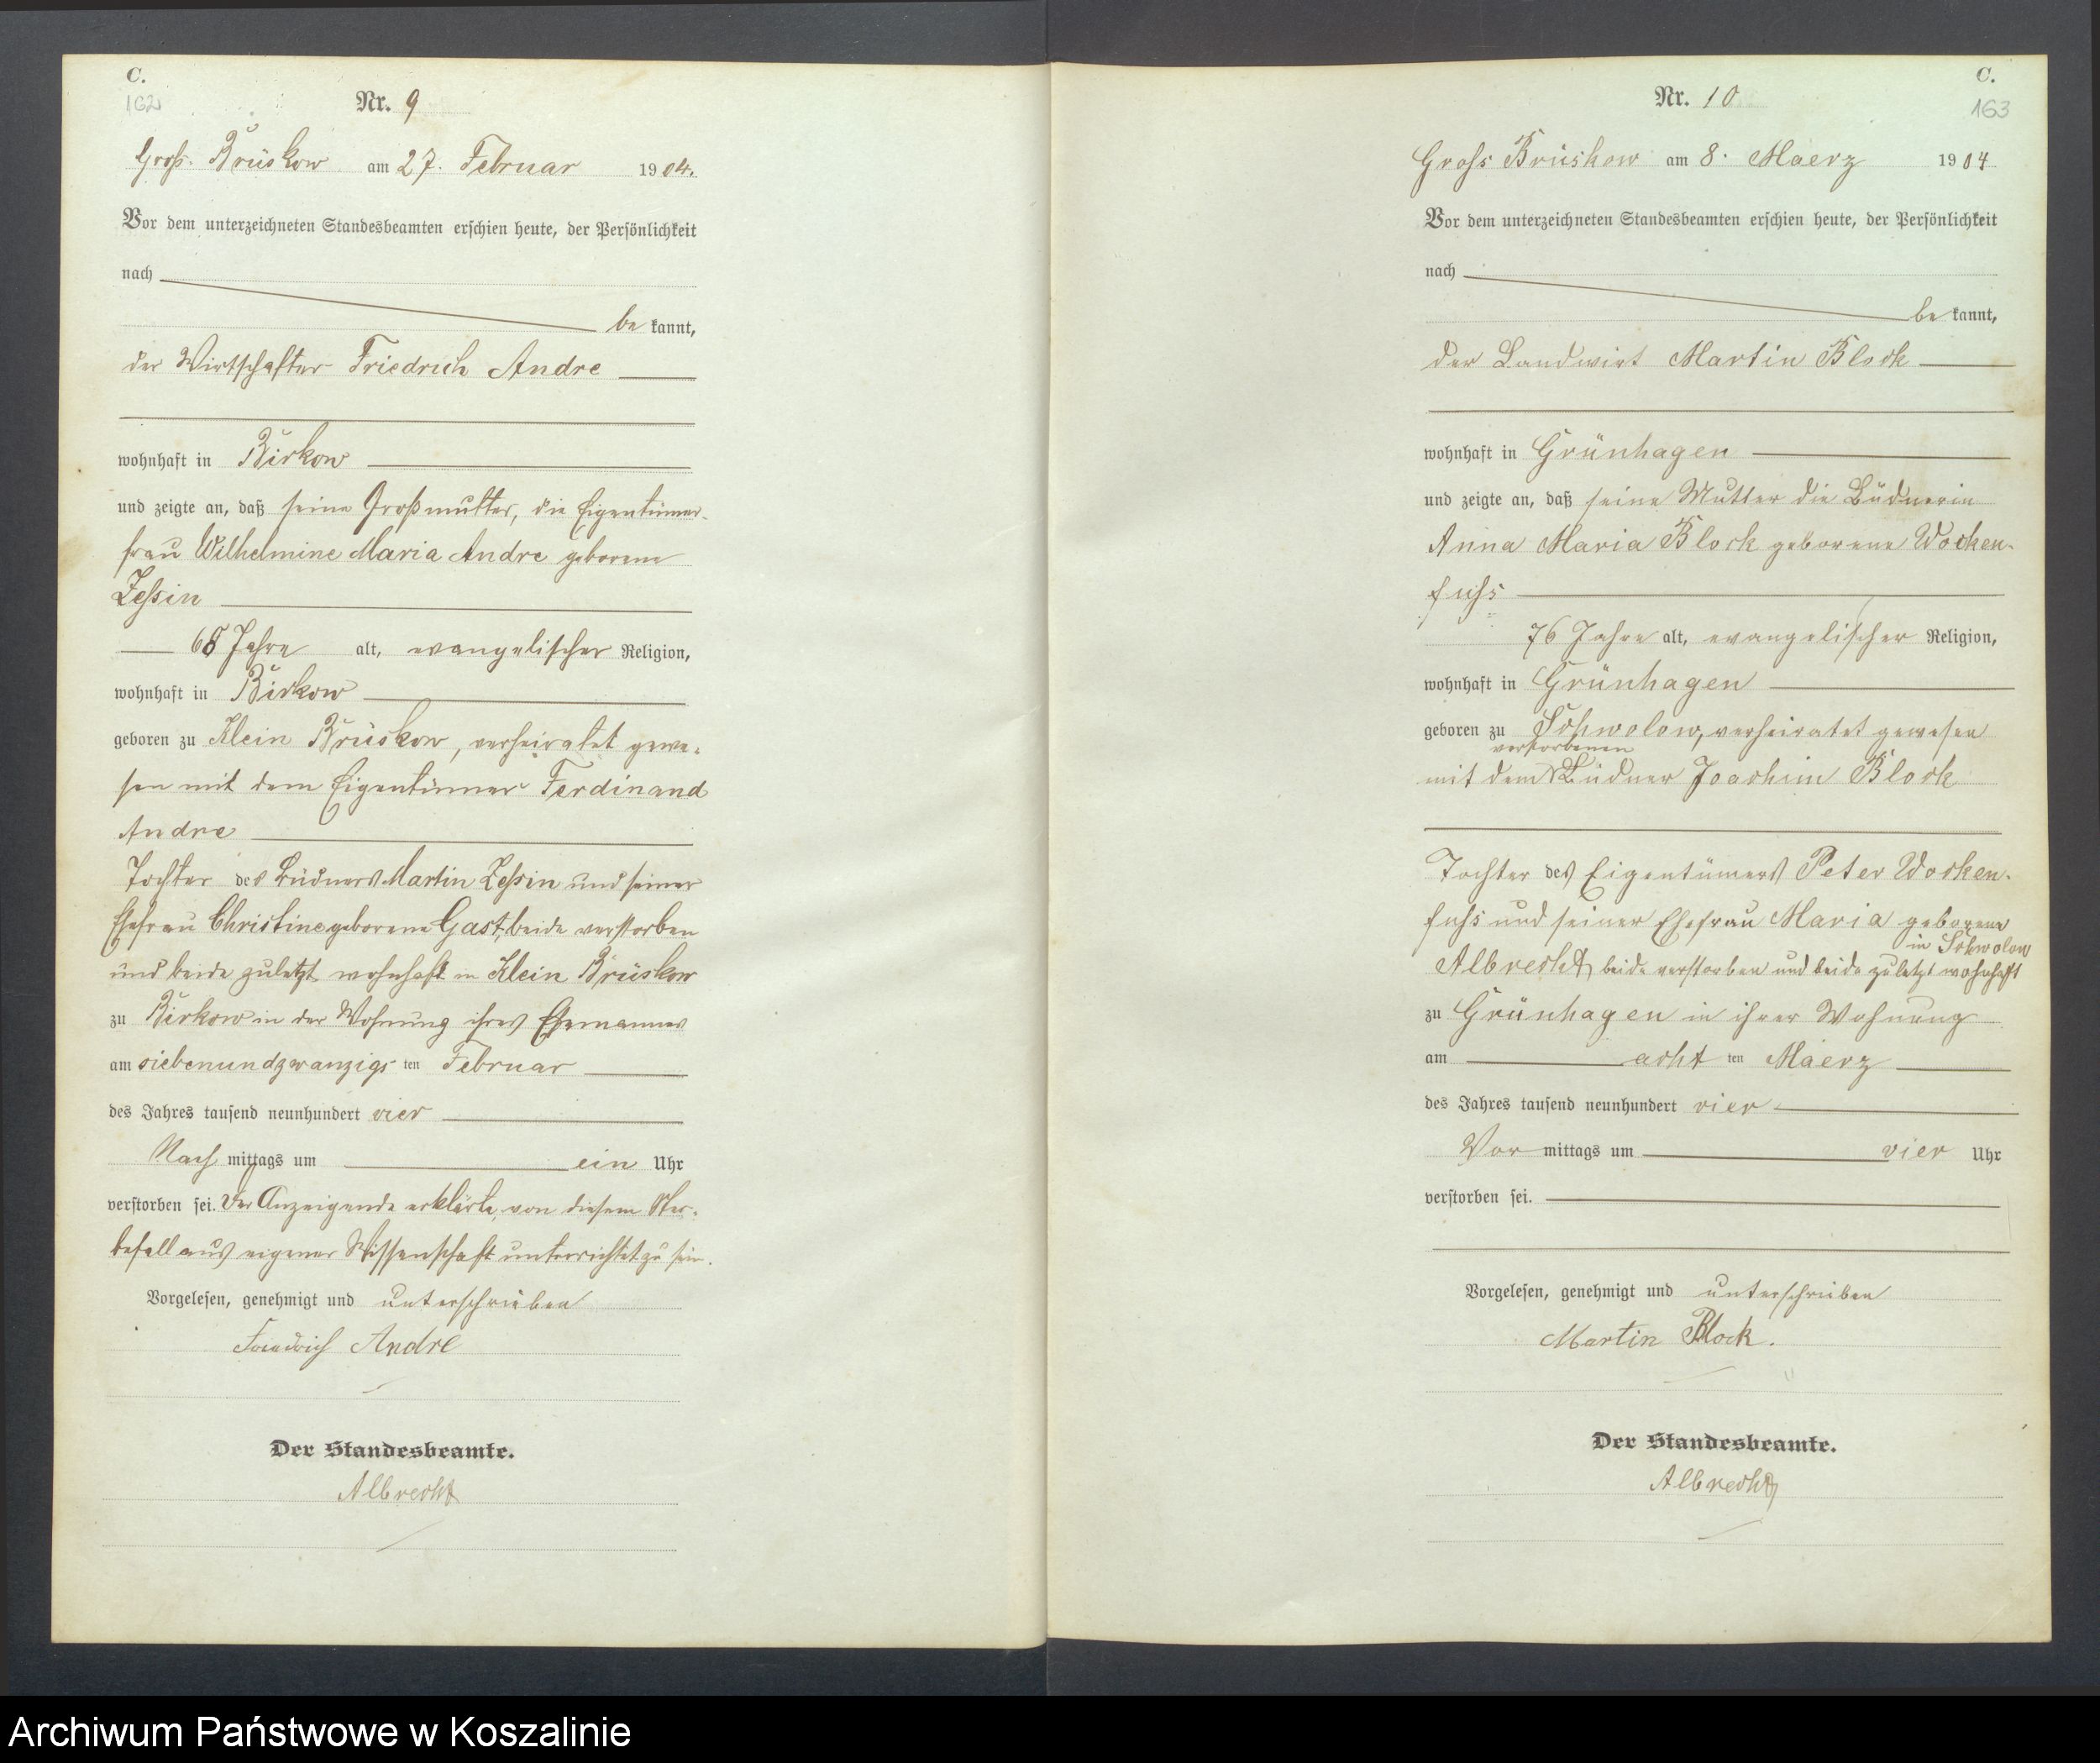 C.
162
Nr. 9
Groß Brüskow am 27. Februar 1904.
Vor dem unterzeichneten Standesbeamten erschien heute, der Persönlichkeit
nach
be kannt,
der Wirtschafter Friedrich Andre
wohnhaft in Birkow
und zeigte an, daß seine Großmutter, die Eigentümer-
frau Wilhelmine Maria Andre geborene
Zessin
68 Jahre alt, evangelischer Religion,
wohnhaft in Birkow
geboren zu Klein Brüskow, verheiratet gewe-
sen mit dem Eigentümer Ferdinand
Andre
Tochter des Büdners Martin Zessin und seiner
Ehefrau Christine geborene Gast, beide verstorben
und beide zuletzt wohnhaft in Klein Brüskow
zu Birkow in der Wohnung ihres Ehemannes
am siebenundzwanzigs ten Februar
des Jahres tausend neunhundert vier
Nach mittags um ein Uhr
verstorben sei. Der Anzeigende erklärte, von diesem Ster-
befall aus eigener Wissenschaft unterrichtet zu sein.
Vorgelesen, genehmigt und unterschrieben
Friedrich Andre
Der Standesbeamte.
Albrecht
C.
163
Nr. 10
Gross Brüskow am 8. Maerz 1904
Vor dem unterzeichneten Standesbeamten erschien heute, der Persönlichkeit
nach
be kannt,
der Landwirt Martin Block
wohnhaft in Grünhagen
und zeigte an, daß seine Mutter die Büdnerin
Anna Maria Block geborene Wocken-
fuhs
76 Jahre alt, evangelischer Religion,
wohnhaft in Grünhagen
geboren zu Schwolow, verheiratet gewesen
verstorbenen
mit dem Büdner Joachim Block
Tochter des Eigentümers Peter Wocken-
fuhs und seiner Ehefrau Maria geborene
in Schwolow
Albrecht, beide verstorben und beide zuletzt wohnhaft
zu Grünhagen in ihrer Wohnung
am acht ten Maerz
des Jahres tausend neunhundert vier
Vor mittags um vier Uhr
verstorben sei.
Vorgelesen, genehmigt und unterschrieben
Martin Block.
Der Standesbeamte.
Albrecht
Archiwum Państwowe w Koszalinie